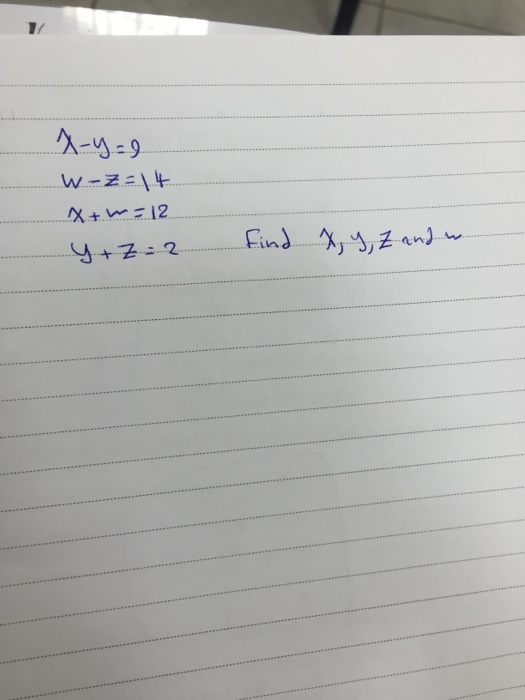 x-y=9
w-z=14
x+w=12
y+z=2 Find x, y, z and w